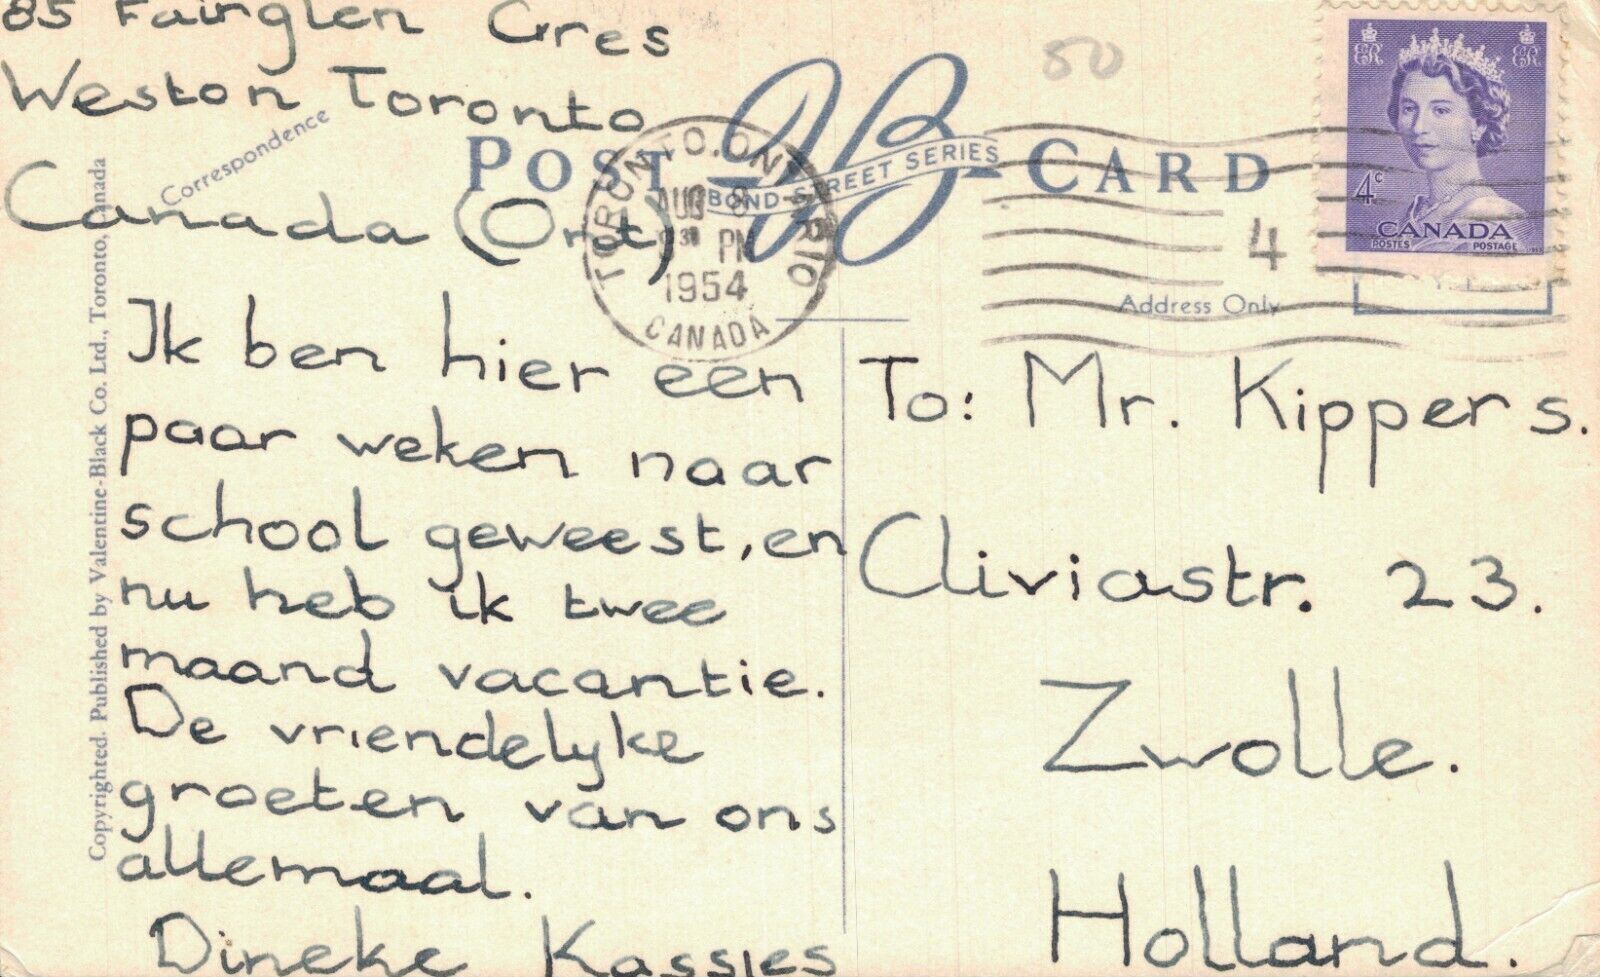 85 Fairglen Cres
Weston Toronto
Canada (Ont)
Correspondence
POST CARD
VB
BOND STREET SERIES
TORONTO, ONTARIO
AUG 8
9 30 PM
1954
CANADA
50
4
ER ER
4c
CANADA
POSTES POSTAGE
Address Only
Copyrighted. Published by Valentine-Black Co. Ltd., Toronto, Canada
Ik ben hier een
paar weken naar
school geweest, en
nu heb ik twee
maand vacantie.
De vriendelyke
groeten van ons
allemaal.
Dineke Kassies
To: Mr. Kippers.
Cliviastr. 23.
Zwolle.
Holland.